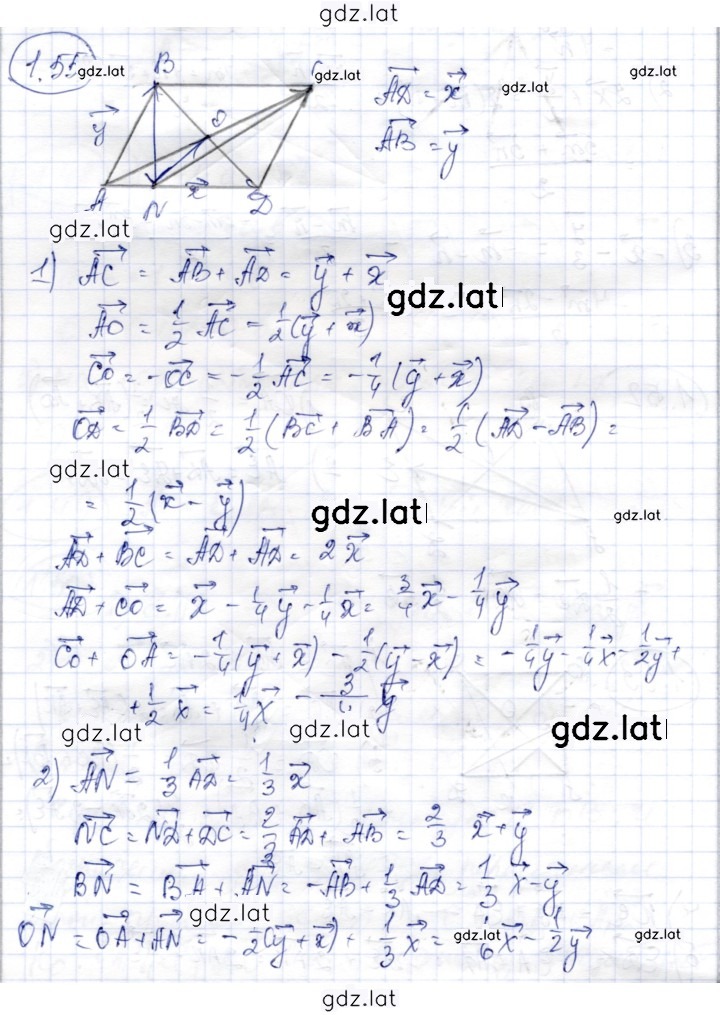 gdz.lat
1.55 gdz.lat
B
gdz.lat
gdz.lat
gdz.lat
AD⃗ = x⃗
AB⃗ = y⃗
y⃗
O
A N x⃗ D
gdz.lat
1) AC⃗ = AB⃗ + AD⃗ = y⃗ + x⃗
gdz.lat
AO⃗ = 1/2 AC⃗ = 1/2(y⃗ + x⃗)
CO⃗ = -OC⃗ = -1/2 AC⃗ = -1/4(y⃗ + x⃗)
OD⃗ = 1/2 BD⃗ = 1/2(BC⃗ + BA⃗) = 1/2(AD⃗ - AB⃗) =
gdz.lat
= 1/2(x⃗ - y⃗)
gdz.lat
gdz.lat
AD⃗ + BC⃗ = AD⃗ + AD⃗ = 2x⃗
AD⃗ + CO⃗ = x⃗ - 1/4 y⃗ - 1/4 x⃗ = 3/4 x⃗ - 1/4 y⃗
CO⃗ + OA⃗ = -1/4(y⃗ + x⃗) - 1/2(y⃗ - x⃗) = -1/4 y⃗ - 1/4 x⃗ - 1/2 y⃗ +
+ 1/2 x⃗ = 1/4 x⃗ - 3/4 y⃗
gdz.lat
gdz.lat
gdz.lat
2) AN⃗ = 1/3 AD⃗ = 1/3 x⃗
NC⃗ = ND⃗ + DC⃗ = 2/3 AD⃗ + AB⃗ = 2/3 x⃗ + y⃗
BN⃗ = BA⃗ + AN⃗ = -AB⃗ + 1/3 AD⃗ = 1/3 x⃗ - y⃗
gdz.lat
ON⃗ = OA⃗ + AN⃗ = -1/2(y⃗ + x⃗) + 1/3 x⃗ = 1/6 x⃗ - 1/2 y⃗
gdz.lat
gdz.lat
gdz.lat